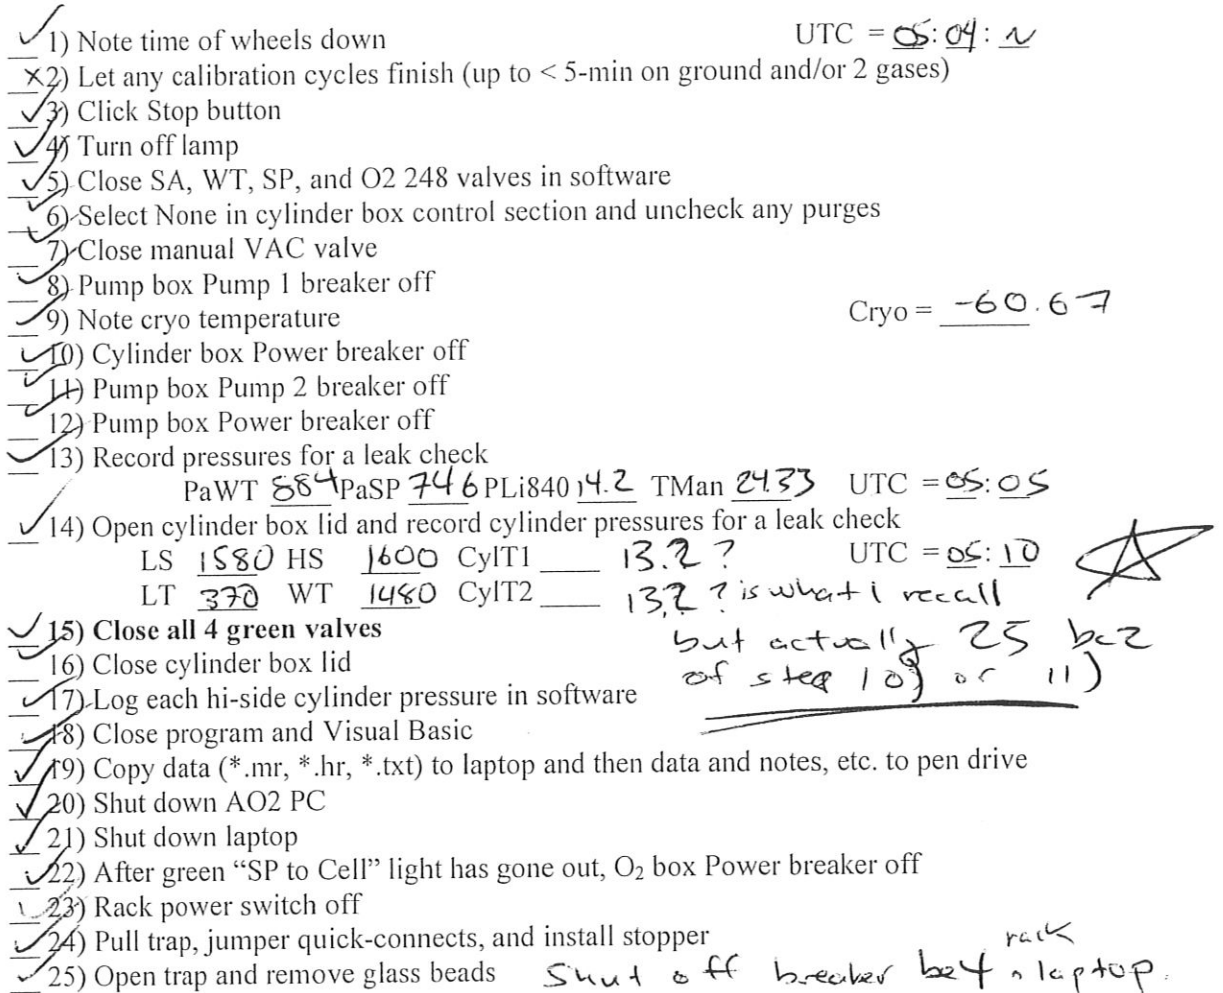 ✓ 1) Note time of wheels down UTC = 05:04:~
x 2) Let any calibration cycles finish (up to < 5-min on ground and/or 2 gases)
✓ 3) Click Stop button
✓ 4) Turn off lamp
✓ 5) Close SA, WT, SP, and O2 248 valves in software
✓ 6) Select None in cylinder box control section and uncheck any purges
✓ 7) Close manual VAC valve
✓ 8) Pump box Pump 1 breaker off
✓ 9) Note cryo temperature Cryo = -60.67
✓ 10) Cylinder box Power breaker off
✓ 11) Pump box Pump 2 breaker off
✓ 12) Pump box Power breaker off
✓ 13) Record pressures for a leak check
PaWT 884 PaSP 746 PLi840 14.2 TMan 24.33 UTC = 05:05
✓ 14) Open cylinder box lid and record cylinder pressures for a leak check
LS 1580 HS 1600 CylT1 ___ 13.2 ? UTC = 05:10
LT 370 WT 1480 CylT2 ___ 13.2 ? is what I recall
✓ 15) Close all 4 green valves but actually 25 bcz
✓ 16) Close cylinder box lid of step 10) or 11)
✓ 17) Log each hi-side cylinder pressure in software
✓ 18) Close program and Visual Basic
✓ 19) Copy data (*.mr, *.hr, *.txt) to laptop and then data and notes, etc. to pen drive
✓ 20) Shut down AO2 PC
✓ 21) Shut down laptop
✓ 22) After green “SP to Cell” light has gone out, O2 box Power breaker off
✓ 23) Rack power switch off
✓ 24) Pull trap, jumper quick-connects, and install stopper
✓ 25) Open trap and remove glass beads Shut off breaker be4 rack laptop.